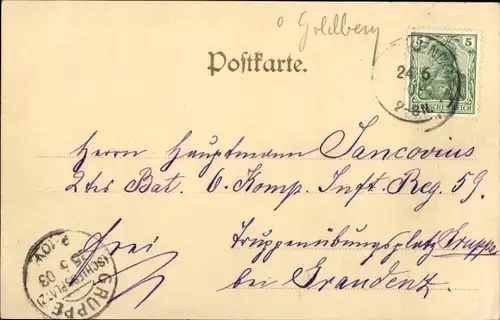 Goldberg
Postkarte.
5
24 6
2-3N.
DEUTSCHES REICH
Herrn Hauptmann Sancovius
2tes Bat. 6. Komp. Inft. Reg. 59.
Frei
Truppenübungsplatz Gruppe
bei Graudenz.
9-10V
25 5 03
(SCHIESSPLATZ)
GRUPPE